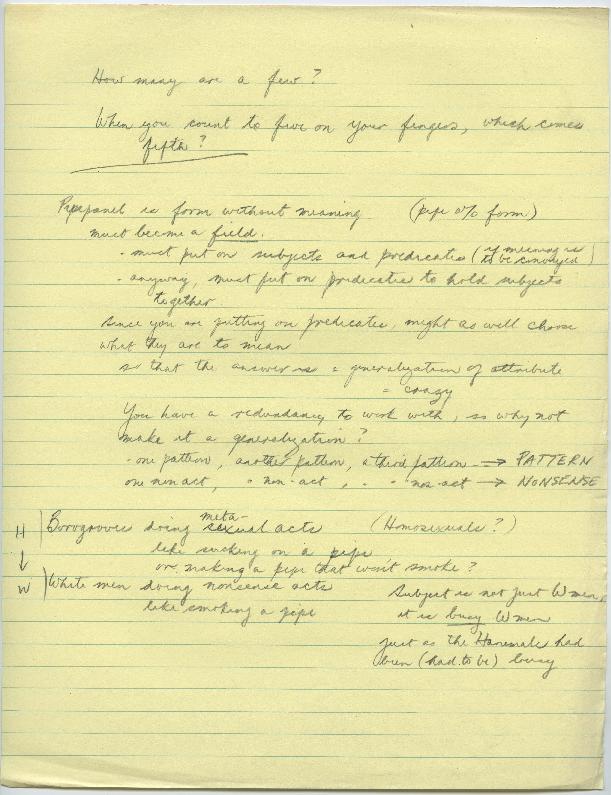 How many are a few?
When you count to five on your fingers, which comes
fifth?
Pipepanel is form without meaning (pipe o% form)
must become a field.
- must put on subjects and predicates (if meaning is
to be conveyed)
- anyway, must put on predicates to hold subjects
together.
Since you are putting on predicates, might as well choose
what they are to mean
so that the answer is = generalization of attribute
= crazy
You have a redundancy to work with, so why not
make it a generalization?
- one pattern, another pattern, a third pattern → PATTERN
one non act, " non-act, " " non-act → NONSENSE
H
Borogroves doing meta-sexual acts (Homosexuals?)
like sucking on a pipe
or making a pipe that won't smoke?
↓
W
White men doing nonsense acts
like smoking a pipe
Subject is not just W men,
it is busy W men
just as the had
been (had to be) busy